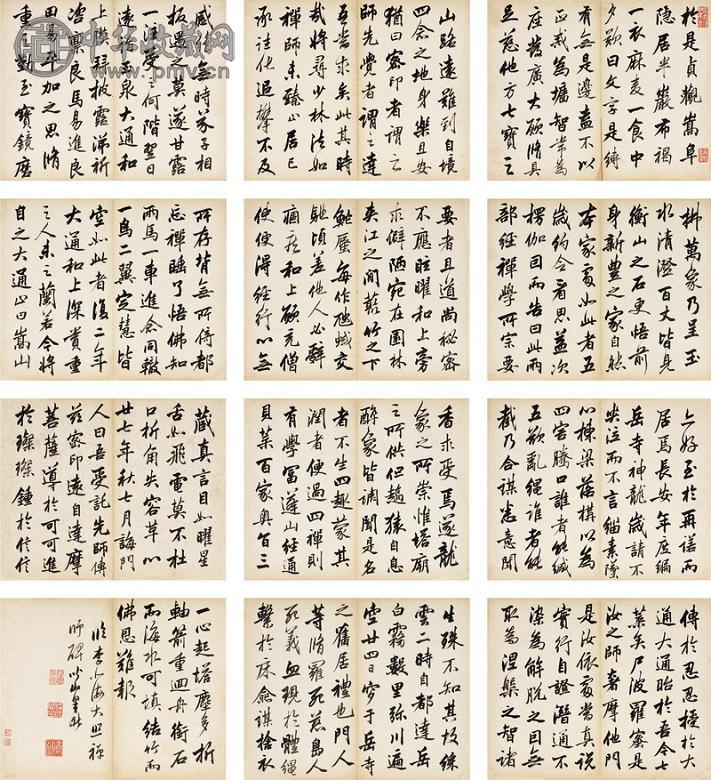 於是貞觀嵩阜
隱居半巖布褐
一衣麻麦一食中
夕歎曰文字是縛
有無是邊盍不以
正戒為墻智常為
座發廣大願脩具
足慈他方七寶三
山路遠難到自境
四念之地身樂且安
猶曰密印者謂之
師先覺者謂之達
吾當求矣此其時
哉將尋少林法如
禪師未臻止居已
承往化追攀不及
感絕無時芥子相
投遇之莫遂甘露
一注受之何階翌日
遠詣玉泉大通和
上膜拜披露涕祈
咨嗟良馬易進良
田易平加之思脩
重之勤至寶鏡磨
拂萬象乃呈玉
水清澄百丈皆見
衡山之石更悟前
身新豐之家自然
本家處如此者五
歲約令看思益次
楞伽因而告曰此兩
部經禪學所宗要
要者且道尚秘密
不應眩曜和上旁
求僻陋宛在園林
夾江之間藂竹之下
虿每作虺蜮交
馳頃差他人必辭
痼疾和上願充僧
使便得經行以無
所存背無所得都
忘禪睡了悟佛知
兩馬一車進念同轍
一鳥二翼定慧皆
空如此者復二年
大通和上深賞重
之人未之蘭若令將
自之大通止曰嵩山
亦好至於再諾而
居焉長安年度編
岳寺神龍歲請不
哭泣而不言緇素墮
心棟梁落構以為
四害騰口誰者能緘
五欲亂繩誰者能
截乃合謀悉意聞
香求受焉遂龍
象之所崇惟塔廟
之所供但趙猿自息
醉象皆調聞是名
者不生四趣蒙其
潤者便過四禪則
有學富蓬山經通
貝葉百家奧旨三
藏真言目如曜星
舌如飛電莫不杜
口折角失容革心
廿七年秋七月誨門
人曰吾受託先師傳
茲密印遠自達摩
菩薩導於可可進
於璨璨鍾於信信
傳於忍忍授於大
通大通貽於吾今七
葉矣尸波羅蜜是
汝之師奢摩他門
是汝依處當真說
實行自證潛通不
染為解脫之因無
取為涅槃之智諸
生殊不知其故殊
雲二時自都達岳
白霧數里彌川遍
空廿四日窆于岳寺
之舊居禮也門人
等脩羅死 島人
死義血現於體繩
繫於床僉謀捨衣
一心起塔塵多折
軸箭重迴舟銜石
而海水可填結竹而
佛恩難報
臨李北海大照禪
師碑
中华收藏网
www.pmv.cn